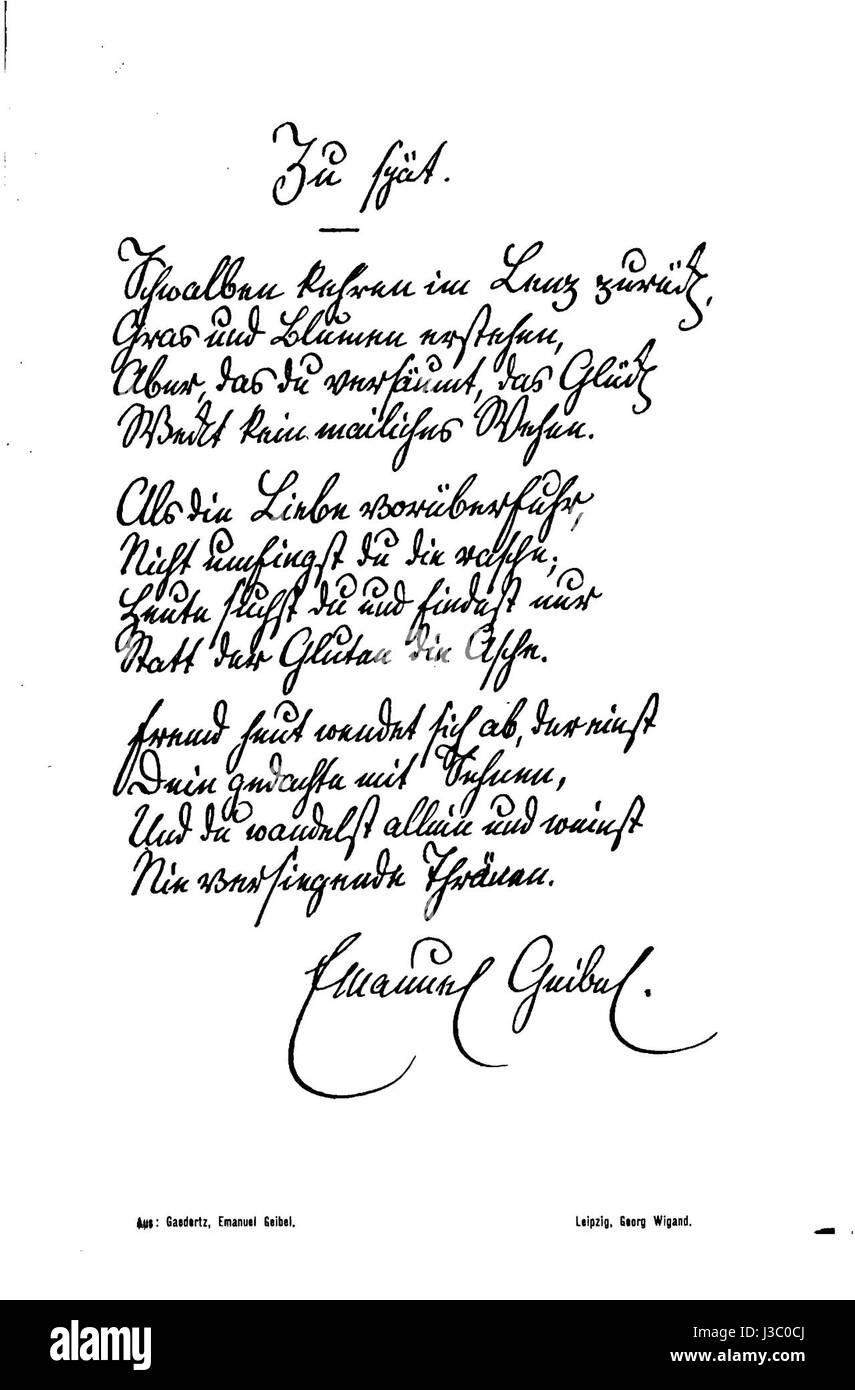 Zu spät.
Schwalben kehren im Lenz zurück,
Gras und Blumen erstehen,
Aber, das du versäumt, das Glück
Weckt kein mailiches Wehen.
Als die Liebe vorüberfuhr,
Nicht umfingst du die rasche;
Heute suchst du und findest nur
Statt der Gluten die Asche.
Fremd heut wendet sich ab, der einst
Dein gedachte mit Sehnen,
Und du wandelst allein und weinst
Nie versiegende Thränen.
Emanuel Geibel.
Aus: Gaedertz, Emanuel Geibel.
Leipzig, Georg Wigand.
alamy stock photo
a
alamy
Image ID: J3C0CJ
www.alamy.com